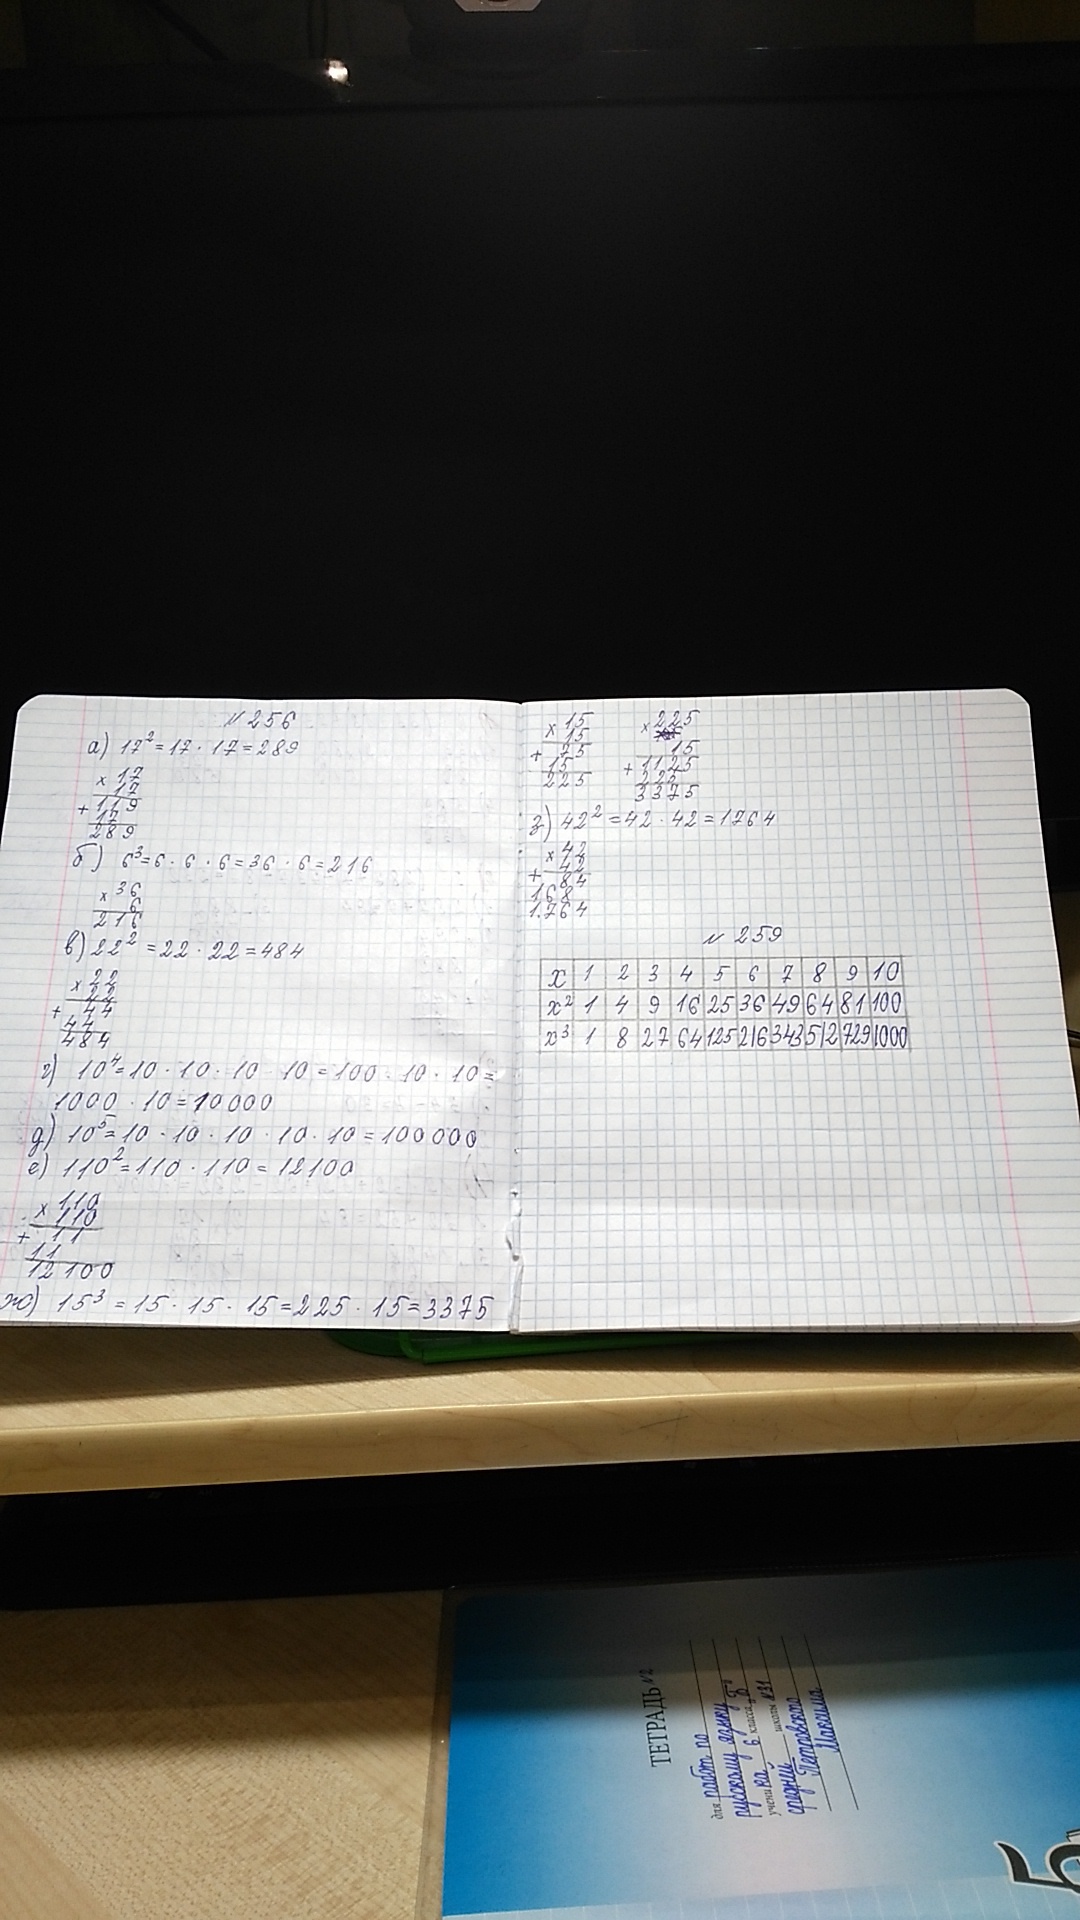 № 256
а) 17² = 17 · 17 = 289
× 17
17
+ 119
17
289
б) 6³ = 6 · 6 · 6 = 36 · 6 = 216
× 36
6
216
в) 22² = 22 · 22 = 484
× 22
22
+ 44
44
484
г) 10⁴ = 10 · 10 · 10 10 = 100 · 10 · 10 =
1000 · 10 = 10000
д) 10⁵ = 10 · 10 · 10 · 10 · 10 = 100000
е) 110² = 110 · 110 = 12100
× 110
110
+ 11
11
12100
ж) 15³ = 15 · 15 · 15 = 225 · 15 = 3375
× 15
15
+ 75
15
225
× 225
15
+ 1125
225
3375
з) 42² = 42 · 42 = 1764
× 42
42
+ 84
168
1764
№ 259
x 1 2 3 4 5 6 7 8 9 10
x² 1 4 9 16 25 36 49 64 81 100
x³ 1 8 27 64 125 216 343 512 729 1000
ТЕТРАДЬ №2
для работ по
русскому языку
учени ка 6 класса „Б"
средней школы №31
Петровского
Максима